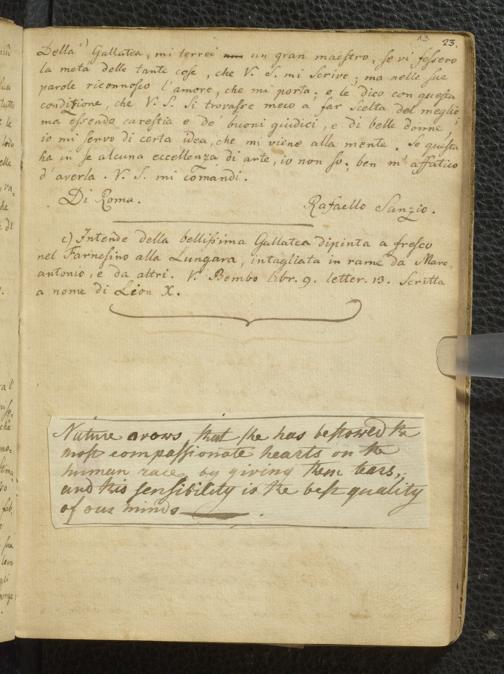 13 23.
Della c) Gallatea, mi terrei un gran maestro, se vi fossero
la metà delle tante cose, che V. S. mi scrive; ma nelle sue
parole riconnosco l'amore, che mi porta; e le dico con questa
condizione, che V. S. si trovasse meco a far scelta del meglio
ma essendo carestia e de' buoni giudici, e di belle donne
io mi servo di certa idea, che mi viene alla mente. Se questa
ha in se alcuna eccellenza di arte, io non so; ben m'affatico
d'averla. V. S. mi comandi.
Di Roma. Rafaello Sanzio.
c) Intende della bellissima Gallatea dipinta a fresco
nel Farnesino alla Lungara, intagliata in rame da Marc
antonio, e da altri. V. Bembo libr. 9. letter. 13. Scritta
a nome di Lion X.
Nature avows that she has bestowed the
most compassionate hearts on the
human race, by giving them tears;
and this sensibility is the best quality
of our minds